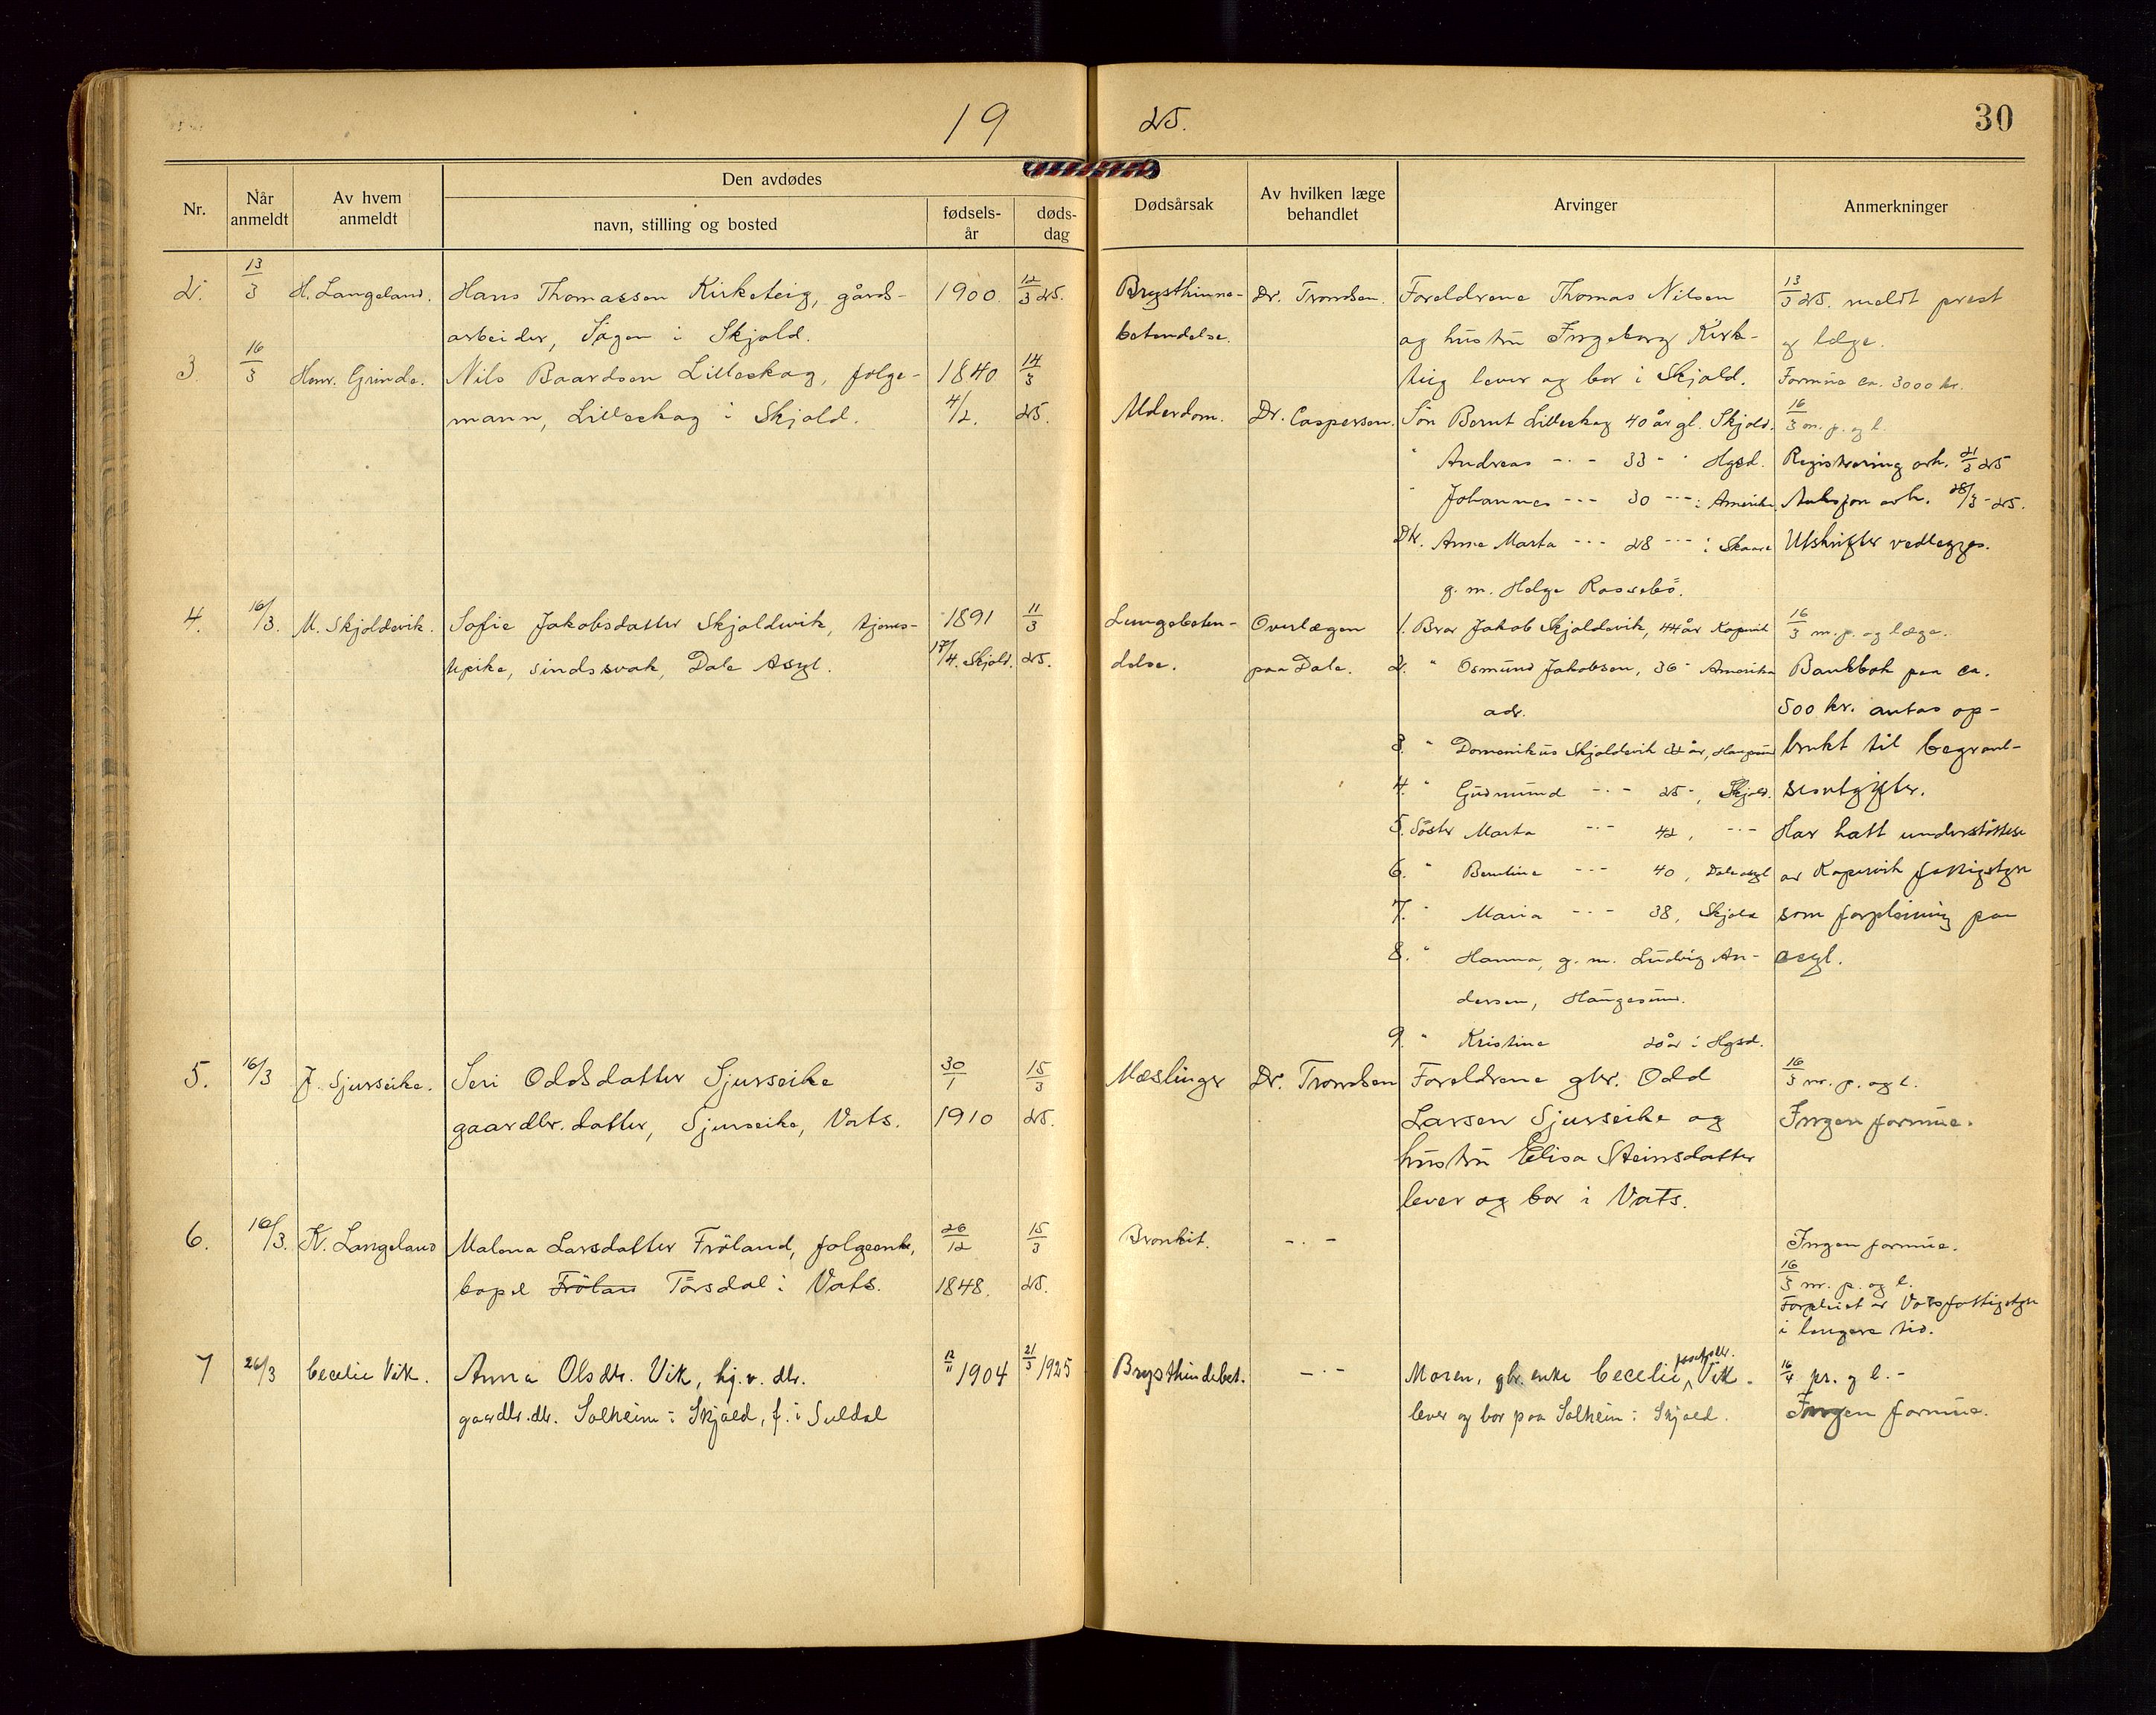 19 25.
30
Nr.
Når anmeldt
Av hvem anmeldt
Den avdødes
navn, stilling og bosted
fødsels-år
døds-dag
Dødsårsak
Av hvilken læge behandlet
Arvinger
Anmerkninger
2. 13/3 H. Langeland. Hans Thomassen Kirketeig, gårds- 1900 12/3 25. Brysthinne- Dr. Tromdsen. Foreldrene Thomas Nilsen 13/3 25. meldt prest
arbeider, i Skjold. betendelse. og hustru Ingeborg Kirke- og læge.
teig lever og bor i Skjold. Formue ca. 3000 kr.
3. 16/3 Henr. Grinde. Nils Baardsen Lilleskog, følge- 1840 14/3
mann, Lilleskog i Skjold. 4/2. 25. Alderdom. Dr. Caspersen. Søn Bernt Lilleskog 40 år gl. Skjold. 16/3 m. p. og l.
" Andreas -"- 33 - " Hgsd. Registrering avh. 21/3 25
" Johannes -"- 30 -"- i Amerika. Auksjon avh. 28/3-25.
Dtr. Anne Marta -"- 28 -"- i Skaare Utskrifter vedlegges.
g. m. Helge Rossebö.
4. 16/3. M. Skjoldevik. Sofie Jakobsdatter Skjoldevik, tjenes- 1891 11/3 Lungebeten- Overlægen 1. Bror Jakob Skjoldevik, 44 år Kopervik 16/3 m. p. og læge.
tepike, sindssvak, Dale Asyl. 17/4. Skjold. 25. delse. paa Dale. 2. " Osmund Jakobsen, 36 - Amerika Bankbok paa ca.
adr. 500 kr. antas op-
3. " Domenikus Skjoldevik år, Haugesund brukt til begravel-
4. " Gudmund -"- 25 -, Skjold. sesutgifter.
5. Söster Marta -"- 42, -"- Har hatt understöttelse
6. " Berntine -"- 40, Dale asyl av Kopervik fattigstyre
7. " Maria -"- 38, Skjold som forpleining paa
8. " Hanna, g. m. Ludvig An- asyl.
dersen, Haugesund.
9. " Kristine 20 år i Hgsd.
5. 16/3 J. Sjurseike. Seri Oddsdatter Sjurseike 30/1 15/3 Mæslinger Dr. Tromdsen Foreldrene gbr. Odd 16/3 m. p. og l.
gaardbr. datter, Sjurseike, Vats. 1910 25. Larsen Sjurseike og Ingen formue.
hustru Elisa Steinsdatter
lever og bor i Vats.
6. 16/3. K. Langeland Malena Larsdatter Fröland, følgeenke, 26/12 15/3 Bronkit. -"- Ingen formue.
bopel Frölan Törsdal i Vats. 1848. 25. 16/3 m. p. og l.
Forpleiet av Vats fattigstyre
i lengere tid.
7 26/3 Cecelie Vik. Anna Olsdtr. Vik, hj. v. dtr. 12/11 1904 21/3 1925 Brysthindebet. -"- Moren, gbr. enke Cecelie Vik. 16/4 pr. og l. -
gaardbr. dtr. Solheim i Skjold, f. i Suldal lever og bor paa Solheim i Skjold. Ingen formue.